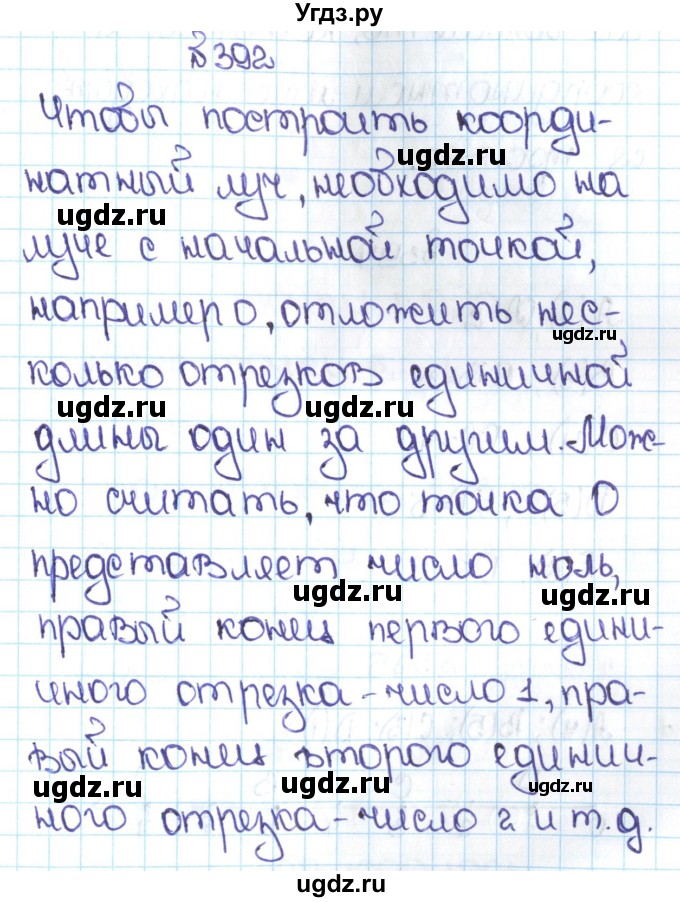 Угдз.ру
№392
Чтобы построить коорди-
ugdz.ru
натный луч, необходимо на
ugdz.ru
луче с начальной точкой,
например О, отложить нес-
ugdz.ru
колько отрезков единичной
ugdz.ru ugdz.ru
длины один за другим. Мож-
но считать, что точка О
представляет число ноль,
ugdz.ru ugdz.ru
правый конец первого едини-
чного отрезка - число 1, пра-
вый конец второго единич-
ugdz.ru ugdz.ru ugdz.ru
ного отрезка - число 2 и т.д.
ugdz.ru